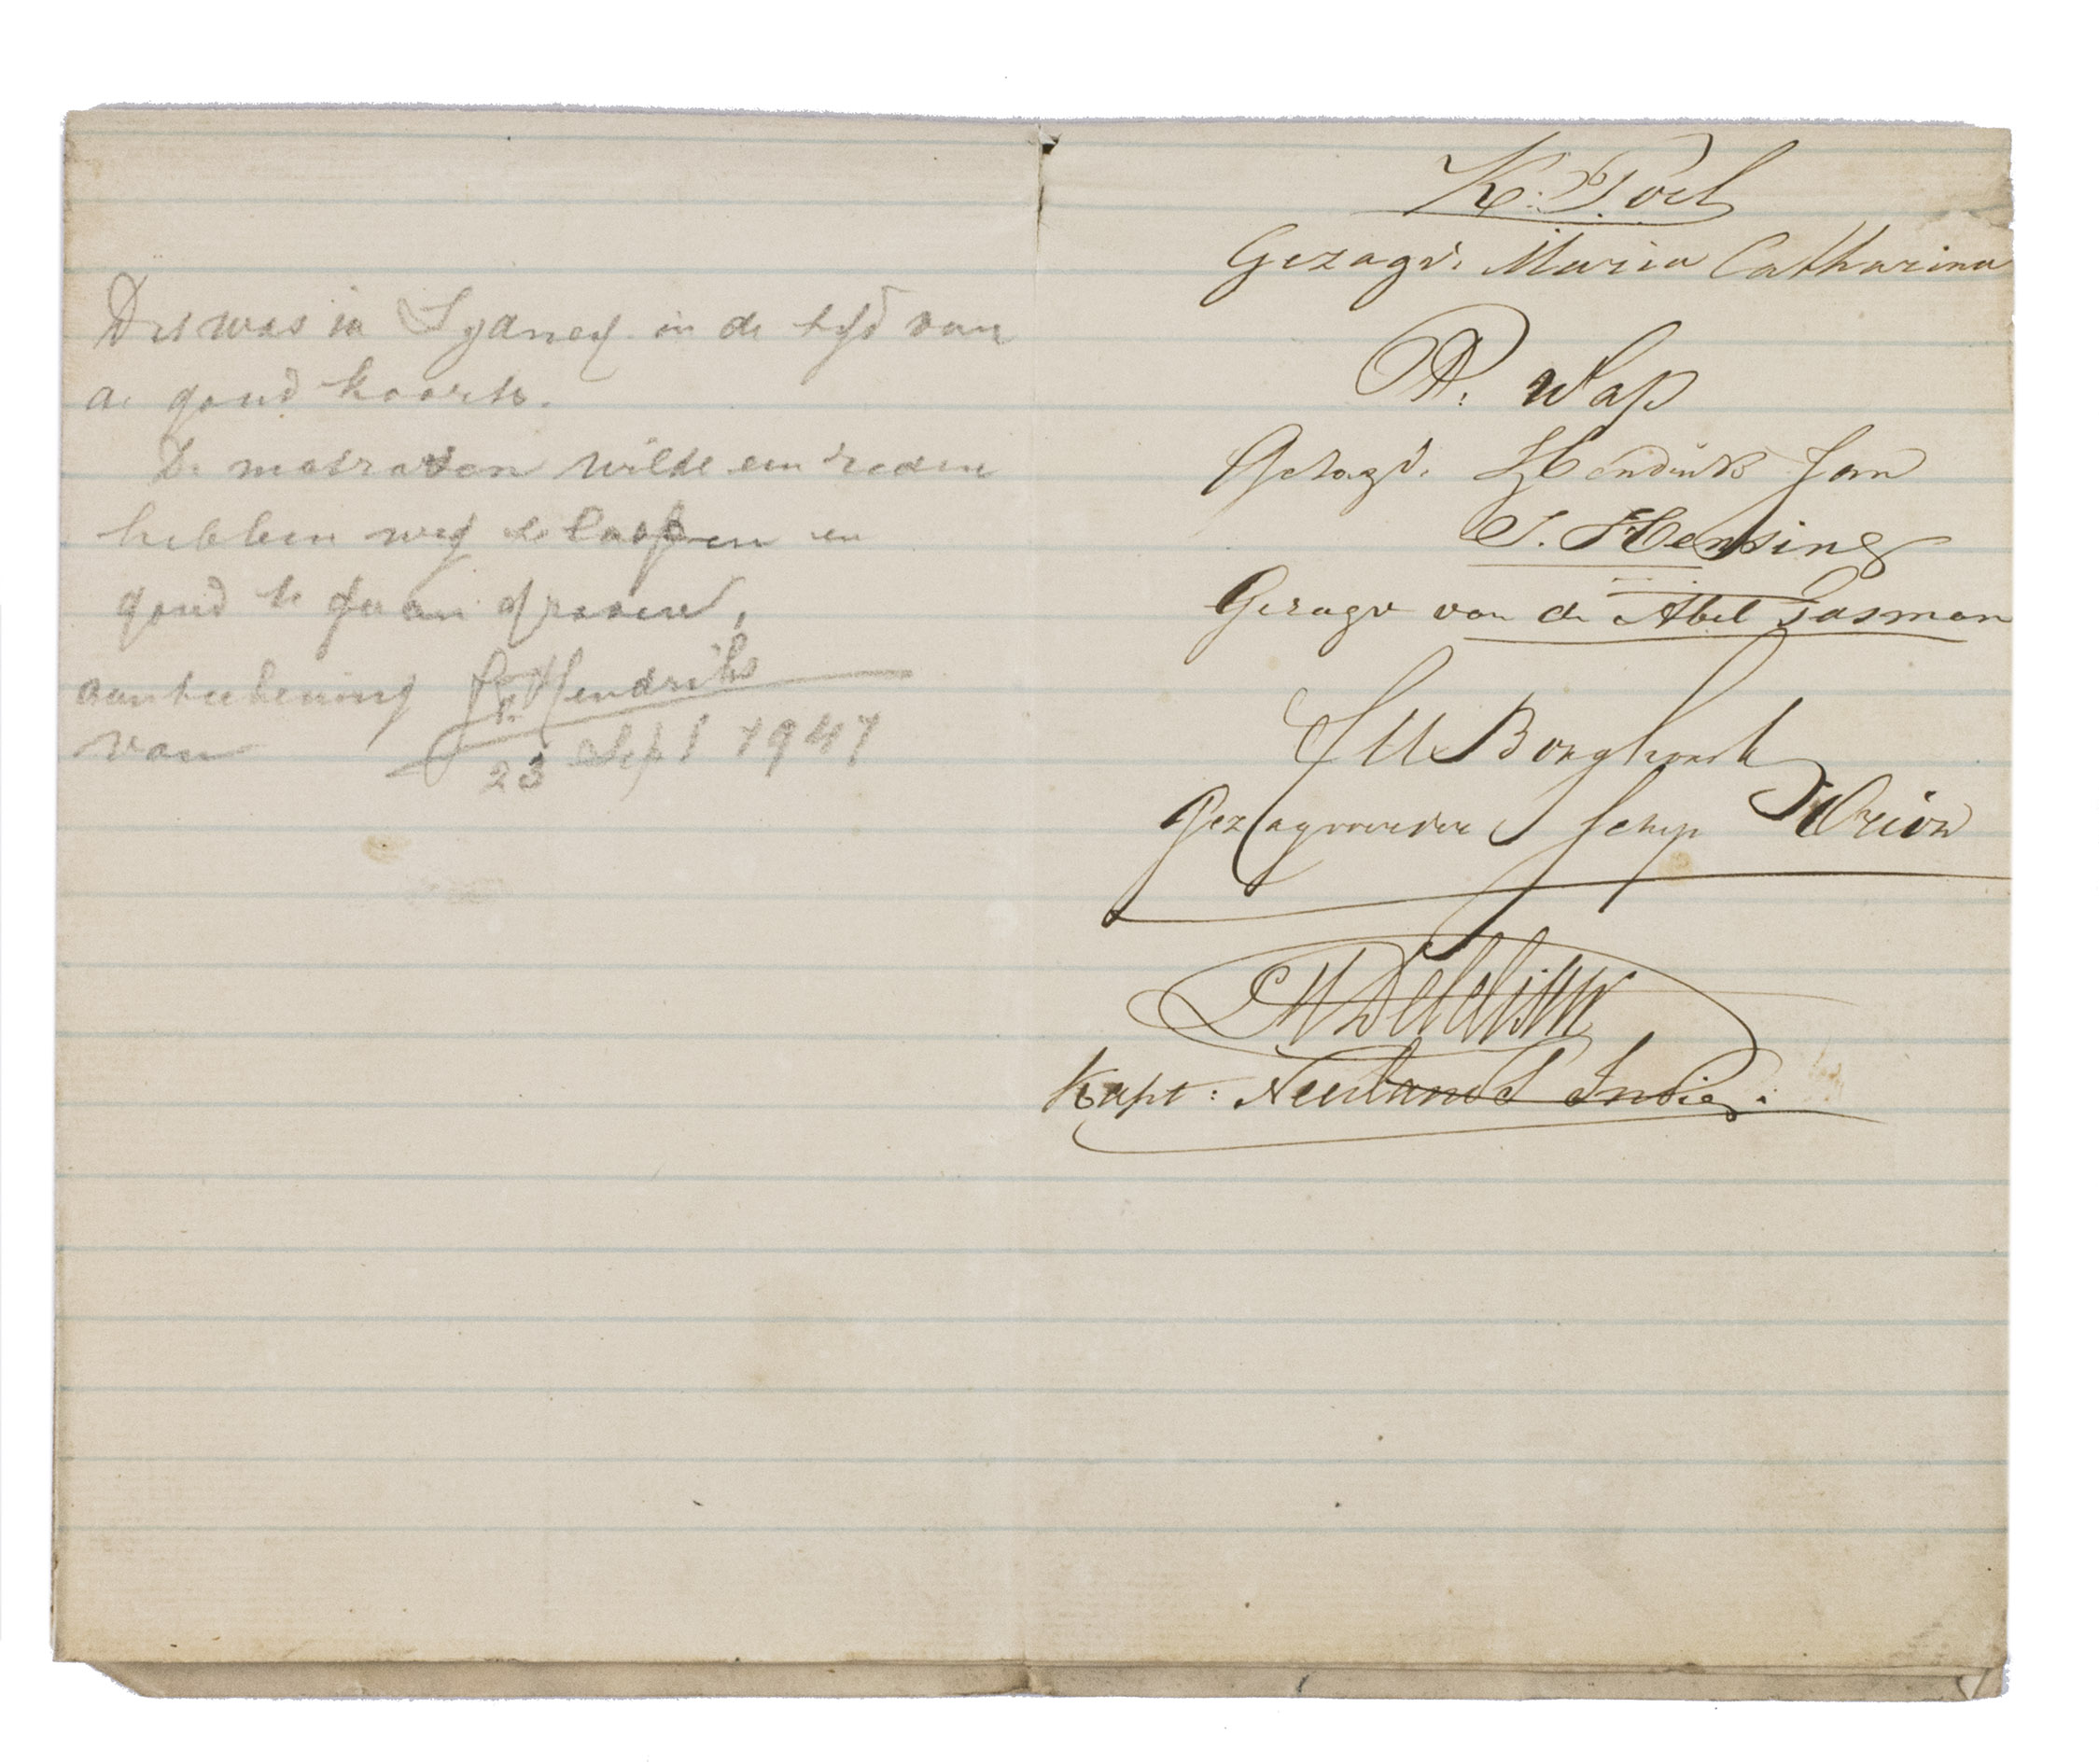 Dit was in Sydney in de tyd van
de goud koorts.
De matrozen wilde een reden
hebben weg te loopen en
goud te gaan graven,
aanteekening Hendriks
van 23 Sept 1947
K. Poel
Gezagv. Maria Catharina
P. Wap
Gezagv. Hendrik Jan
J. Hensing
Gezagv van de Abel Tasman
Gezagvoerder Schip Orion
Kapt: Neerlands Indie.